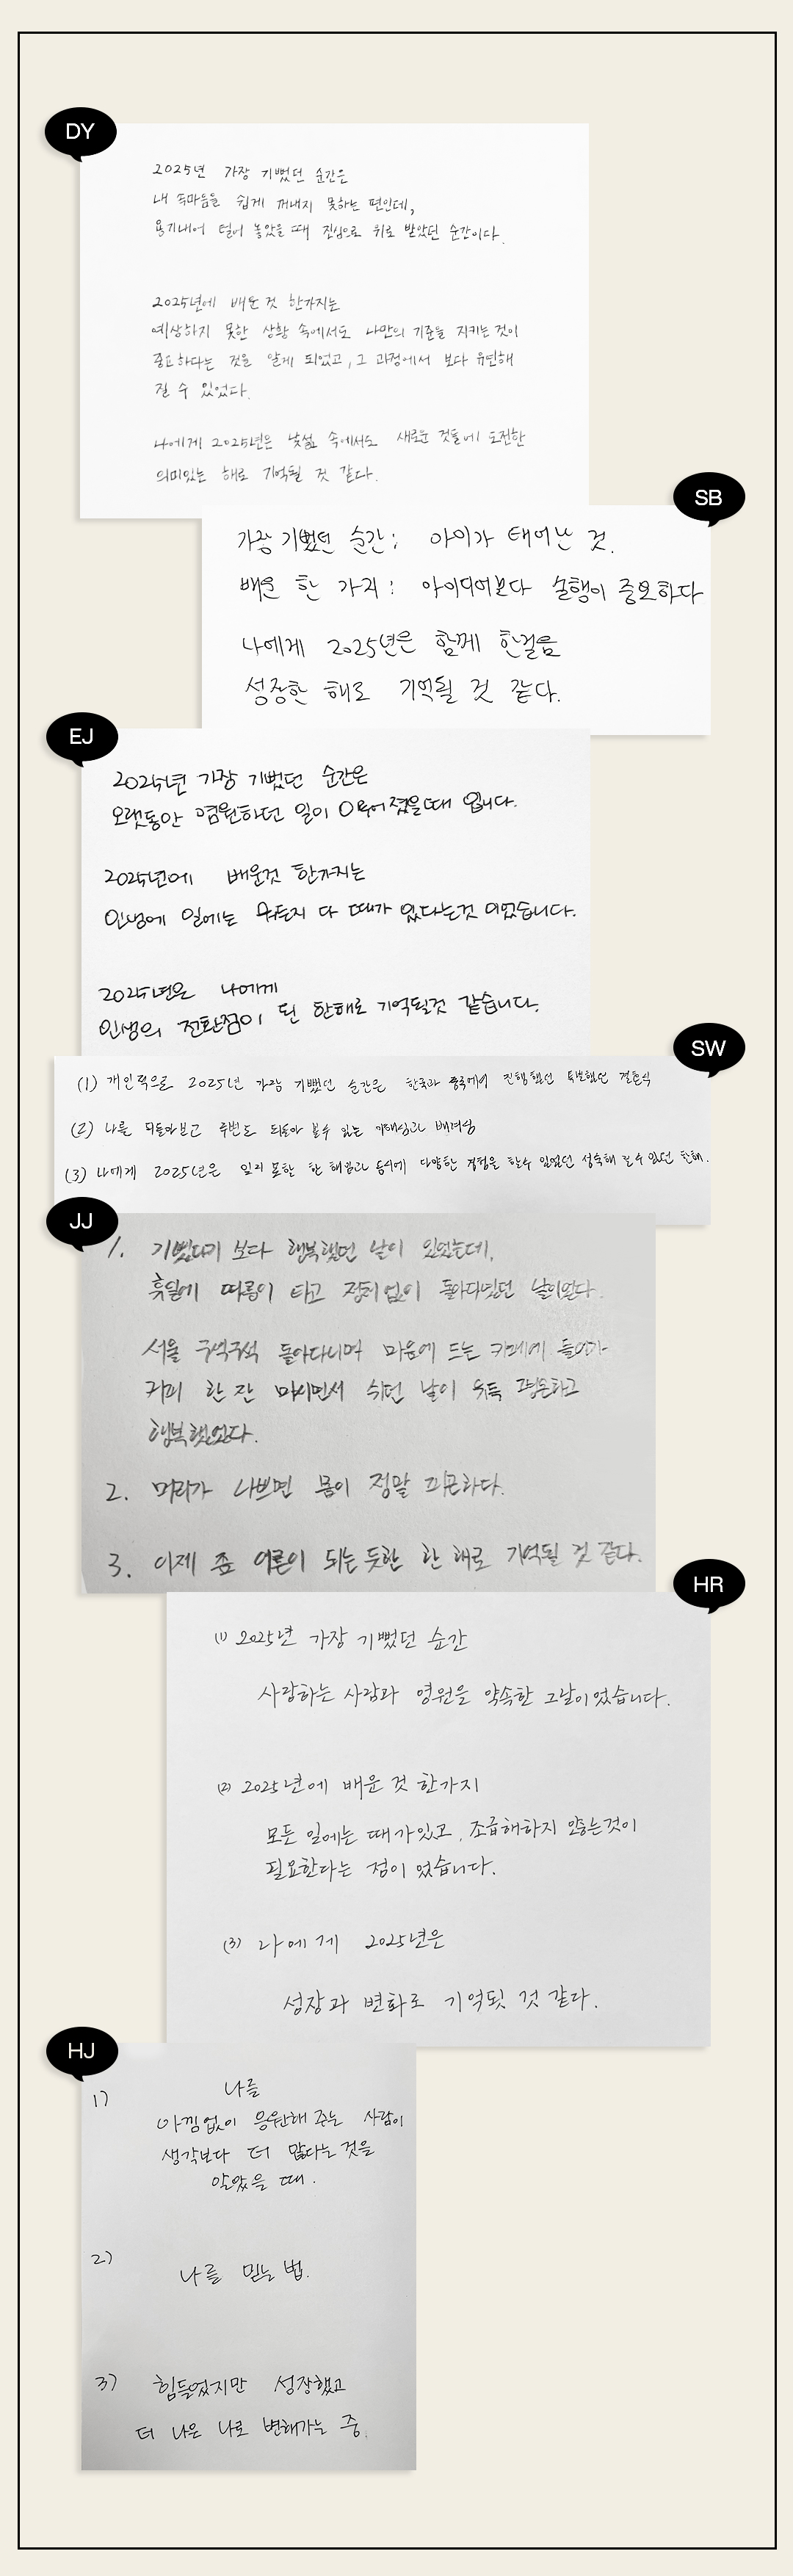 DY
2025년 가장 기뻤던 순간은
내 속마음을 쉽게 꺼내지 못하는 편인데,
용기내어 털어 놓았을 때 진심으로 위로 받았던 순간이다.
2025년에 배운 것 한가지는
예상하지 못한 상황 속에서도 나만의 기준을 지키는 것이
중요하다는 것을 알게 되었고, 그 과정에서 보다 유연해
질 수 있었다.
나에게 2025년은 낯섦 속에서도 새로운 것들에 도전한
의미있는 해로 기억될 것 같다.
SB
가장 기뻤던 순간: 아이가 태어난 것.
배운 한 가지: 아이디어보다 실행이 중요하다
나에게 2025년은 함께 한걸음
성장한 해로 기억될 것 같다.
EJ
2025년 가장 기뻤던 순간은
오랫동안 염원하던 일이 이루어졌을때 입니다.
2025년에 배운것 한가지는
인생에 일에는 뭐든지 다 때가 있다는것 이었습니다.
2025년은 나에게
인생의 전환점이 된 한해로 기억될것 같습니다.
SW
(1) 개인적으로 2025년 가장 기뻤던 순간은 한국과 중국에서 진행했던 특별했던 결혼식
(2) 나를 뒤돌아보고 주변도 되돌아 볼수 있는 이해심과 배려심
(3) 나에게 2025년은 잊지 못할 한 해임과 동시에 다양한 경험을 할수 있었던 성숙해 질수 있던 한해.
JJ
1. 기뻤다기 보다 행복했던 날이 있었는데,
휴일에 따릉이 타고 정처없이 돌아다녔던 날이었다.
서울 구석구석 돌아다니며 마음에 드는 카페에 들어가
커피 한 잔 마시면서 쉬던 날이 무척 평온하고
행복했었다.
2. 머리가 나쁘면 몸이 정말 피곤하다.
3. 이제 좀 어른이 되는 듯한 한 해로 기억될 것 같다.
HR
(1) 2025년 가장 기뻤던 순간
사랑하는 사람과 영원을 약속한 그날이었습니다.
(2) 2025년에 배운 것 한가지
모든 일에는 때가있고, 조급해하지 않는것이
필요한다는 점이었습니다.
(3) 나에게 2025년은
성장과 변화로 기억될 것 같다.
HJ
1) 나를
아낌없이 응원해 주는 사람이
생각보다 더 많다는 것을
알았을 때.
2) 나를 믿는 법.
3) 힘들었지만 성장했고
더 나은 나로 변해가는 중.